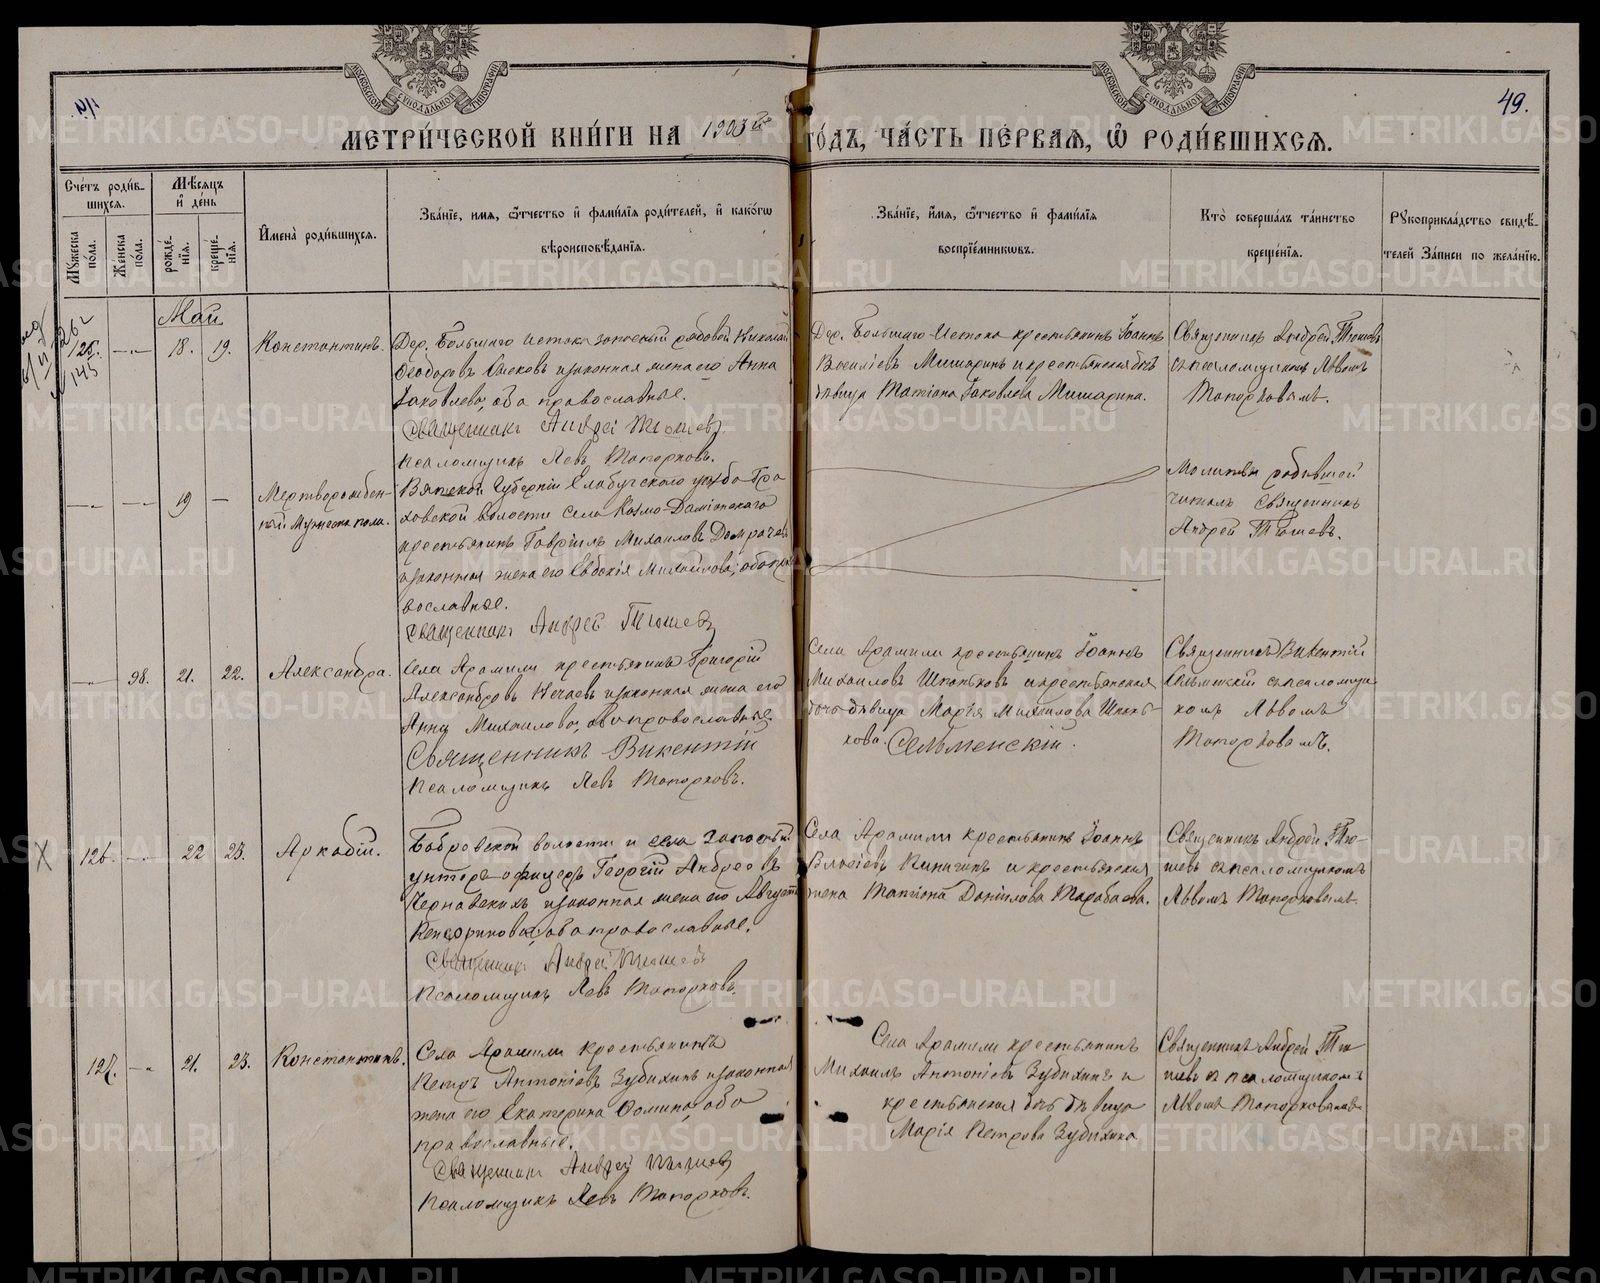 49.
МЕТРИ́ЧЕСКОЙ КНИ́ГИ НА 1903й ГО́ДЪ, ЧА́СТЬ ПЕ́РВАѦ, Ѡ РОДИ́ВШИХСѦ.
Сче́тъ роди́в-
шихсѧ.
Мѣ́сяцъ
и́ де́нь
Мꙋ́жеска
по́ла.
Же́нска
по́ла.
рожде́-
нїѧ.
креще́-
нїѧ.
И҆мена̀ роди́вшихсѧ.
Зва́нїе, имѧ, ѻ҆́тчество и҆ фами́лїѧ роди́телей, и҆ како́гѡ
вѣроисповѣ́данїѧ.
Зва́нїе, и҆́мѧ, ѻ҆́тчество и҆ фами́лїѧ
воспрїе́мникѡвъ.
Кто̀ соверша́лъ та́инство
креще́нїѧ.
Рꙋкоприкла́дство свидѣ́-
телей За́писи по жела́нїю.
Май
125. — 18. 19. Константинъ.
Дер. Большаго Истока запасный рядовой Николай
Ѳеодоровъ и законная жена его Анна
Іаковлева, оба православные.
Священникъ Андрей Тюшевъ
Псаломщикъ Левъ Топорковъ.
Дер. Большаго Истока крестьянинъ Іоаннъ
Васильевъ Мишаринъ и крестьянская дочь
дѣвица Татіана Іаковлева Мишарина.
Священникъ Андрей Тюшевъ
съ псаломщикомъ Львомъ
Топорковымъ.
— — 19 — Мертворожден-
ный Мужеска пола.
Вятской Губерніи Елабужскаго уѣзда Гра
ховской волости села Козмо-Даміанскаго
крестьянинъ Гавріилъ Михаиловъ
и законная жена его Евдокія Михайлова, оба пра
вославные.
Священникъ Андрей Тюшевъ
Молитвы родившей
читалъ Священникъ
Андрей Тюшевъ.
— 98. 21. 22. Александра.
Села Арамили крестьянинъ Григорій
Александровъ Нечаевъ и законная жена его
Анна Михаилова, оба православные.
Священникъ Викентій
Сельменскій.
Псаломщикъ Левъ Топорковъ.
Села Арамили крестьянинъ Іоаннъ
Михаиловъ Шпаньковъ и крестьянская
дочь дѣвица Марія Михаилова Шпань-
кова.
Священникъ Викентій
Сельменскій съ псаломщи
комъ Львомъ
Топорковымъ.
Х 126. — 22 23. Аркадій.
Бобровской волости и села запасный
унтеръ-офицеръ Георгій Андреевъ
Чернавскихъ и законная жена его Августа
Кенсоринова, оба православные.
Священникъ Андрей Тюшевъ
Псаломщикъ Левъ Топорковъ.
Села Арамили крестьянинъ Іоаннъ
Власіевъ и крестьянская
жена Татіана Даніилова Тарабаева.
Священникъ Андрей Тю-
шевъ съ псаломщикомъ
Львомъ Топорковымъ.
127. — 21. 23. Константинъ.
Села Арамили крестьянинъ
Петръ Антоніевъ Зубихинъ и законная
жена его Екатерина Ѳомина, оба
православные.
Священникъ Андрей Тюшевъ
Псаломщикъ Левъ Топорковъ.
Села Арамили крестьянинъ
Михаилъ Антоніевъ Зубихинъ и
крестьянская дочь дѣвица
Марія Петрова Зубихина.
Священникъ Андрей Тю
шевъ съ псаломщикомъ
Львомъ Топорковымъ.